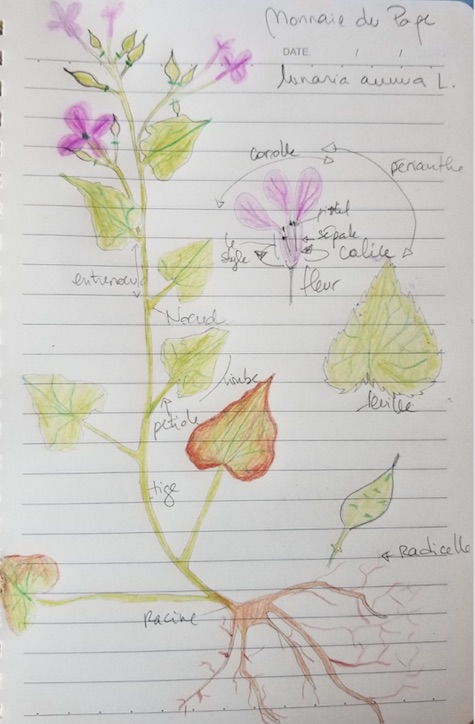 Monnaie du Pape
DATE / /
lunaria annua L.
corolle
périanthe
pistil
sépale
le style
calice
fleur
entrenoeud
Noeud
limbe
pétiole
feuille
tige
Radicelle
Racine